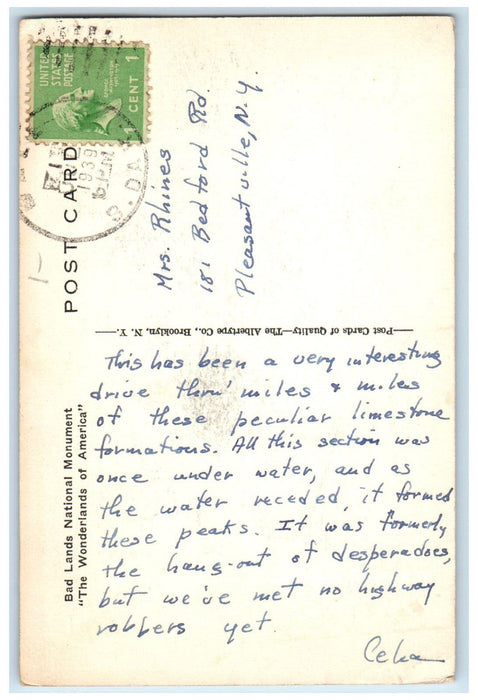 UNITED
STATES
POSTAGE
1
CENT
1939
PM
S. DAK.
POST CARD
Mrs. Rhines
181 Bedford Rd.
Pleasantville, N.Y.
—Post Cards of Quality—The Albertype Co., Brooklyn, N. Y.—
Bad Lands National Monument
"The Wonderlands of America"
This has been a very interesting
drive thru' miles & miles
of these peculiar limestone
formations. All this section was
once under water, and as
the water receded, it formed
these peaks. It was formerly
the hang-out of desperadoes,
but we've met no highway
robbers yet.